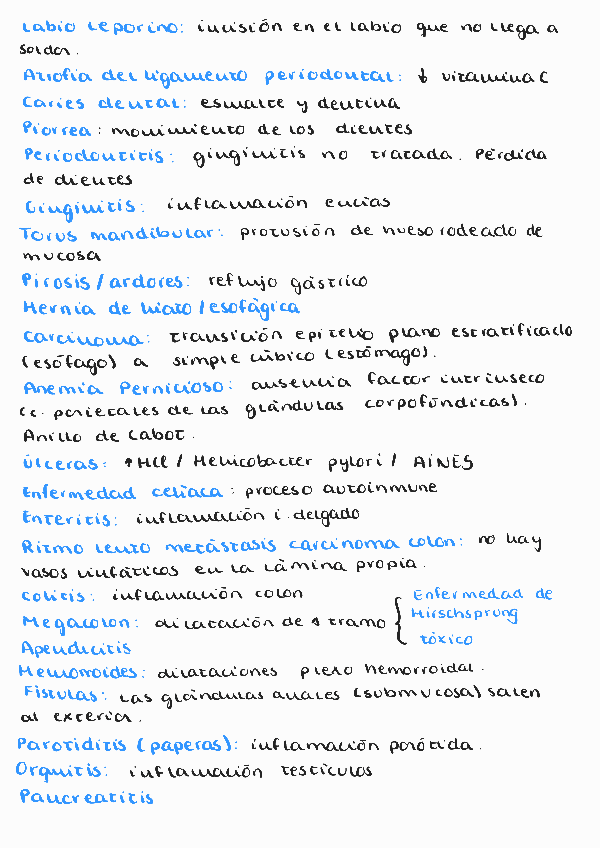 Labio leporino: incisión en el labio que no llega a
soldar.
Atrofia del ligamento periodontal: ↓ vitamina C
Caries dental: esmalte y dentina
Piorrea: movimiento de los dientes
Periodontitis: gingivitis no tratada. Pérdida
de dientes
Gingivitis: inflamación encías
Torus mandibular: protusión de hueso rodeado de
mucosa
Pirosis/ardores: reflujo gástrico
Hernia de hiato/esofágica
Carcinoma: transición epitelio plano estratificado
(esófago) a simple cúbico (estómago).
Anemia Pernicioso: ausencia factor intrínseco
(c. parietales de las glándulas corpofúndicas).
Anillo de Cabot.
Úlceras: ↑HCl / Helicobacter pylori / AINES
Enfermedad celíaca: proceso autoinmune
Enteritis: inflamación i. delgado
Ritmo lento metástasis carcinoma colon: no hay
vasos linfáticos en la lámina propia.
Colitis: inflamación colon
Megacolon: dilatación de 1 tramo { Enfermedad de
Hirschsprung
tóxico
Apendicitis
Hemorroides: dilataciones plexo hemorroidal.
Fístulas: las glándulas anales (submucosa) salen
al exterior.
Parotiditis (paperas): inflamación parótida.
Orquitis: inflamación testículos
Pancreatitis